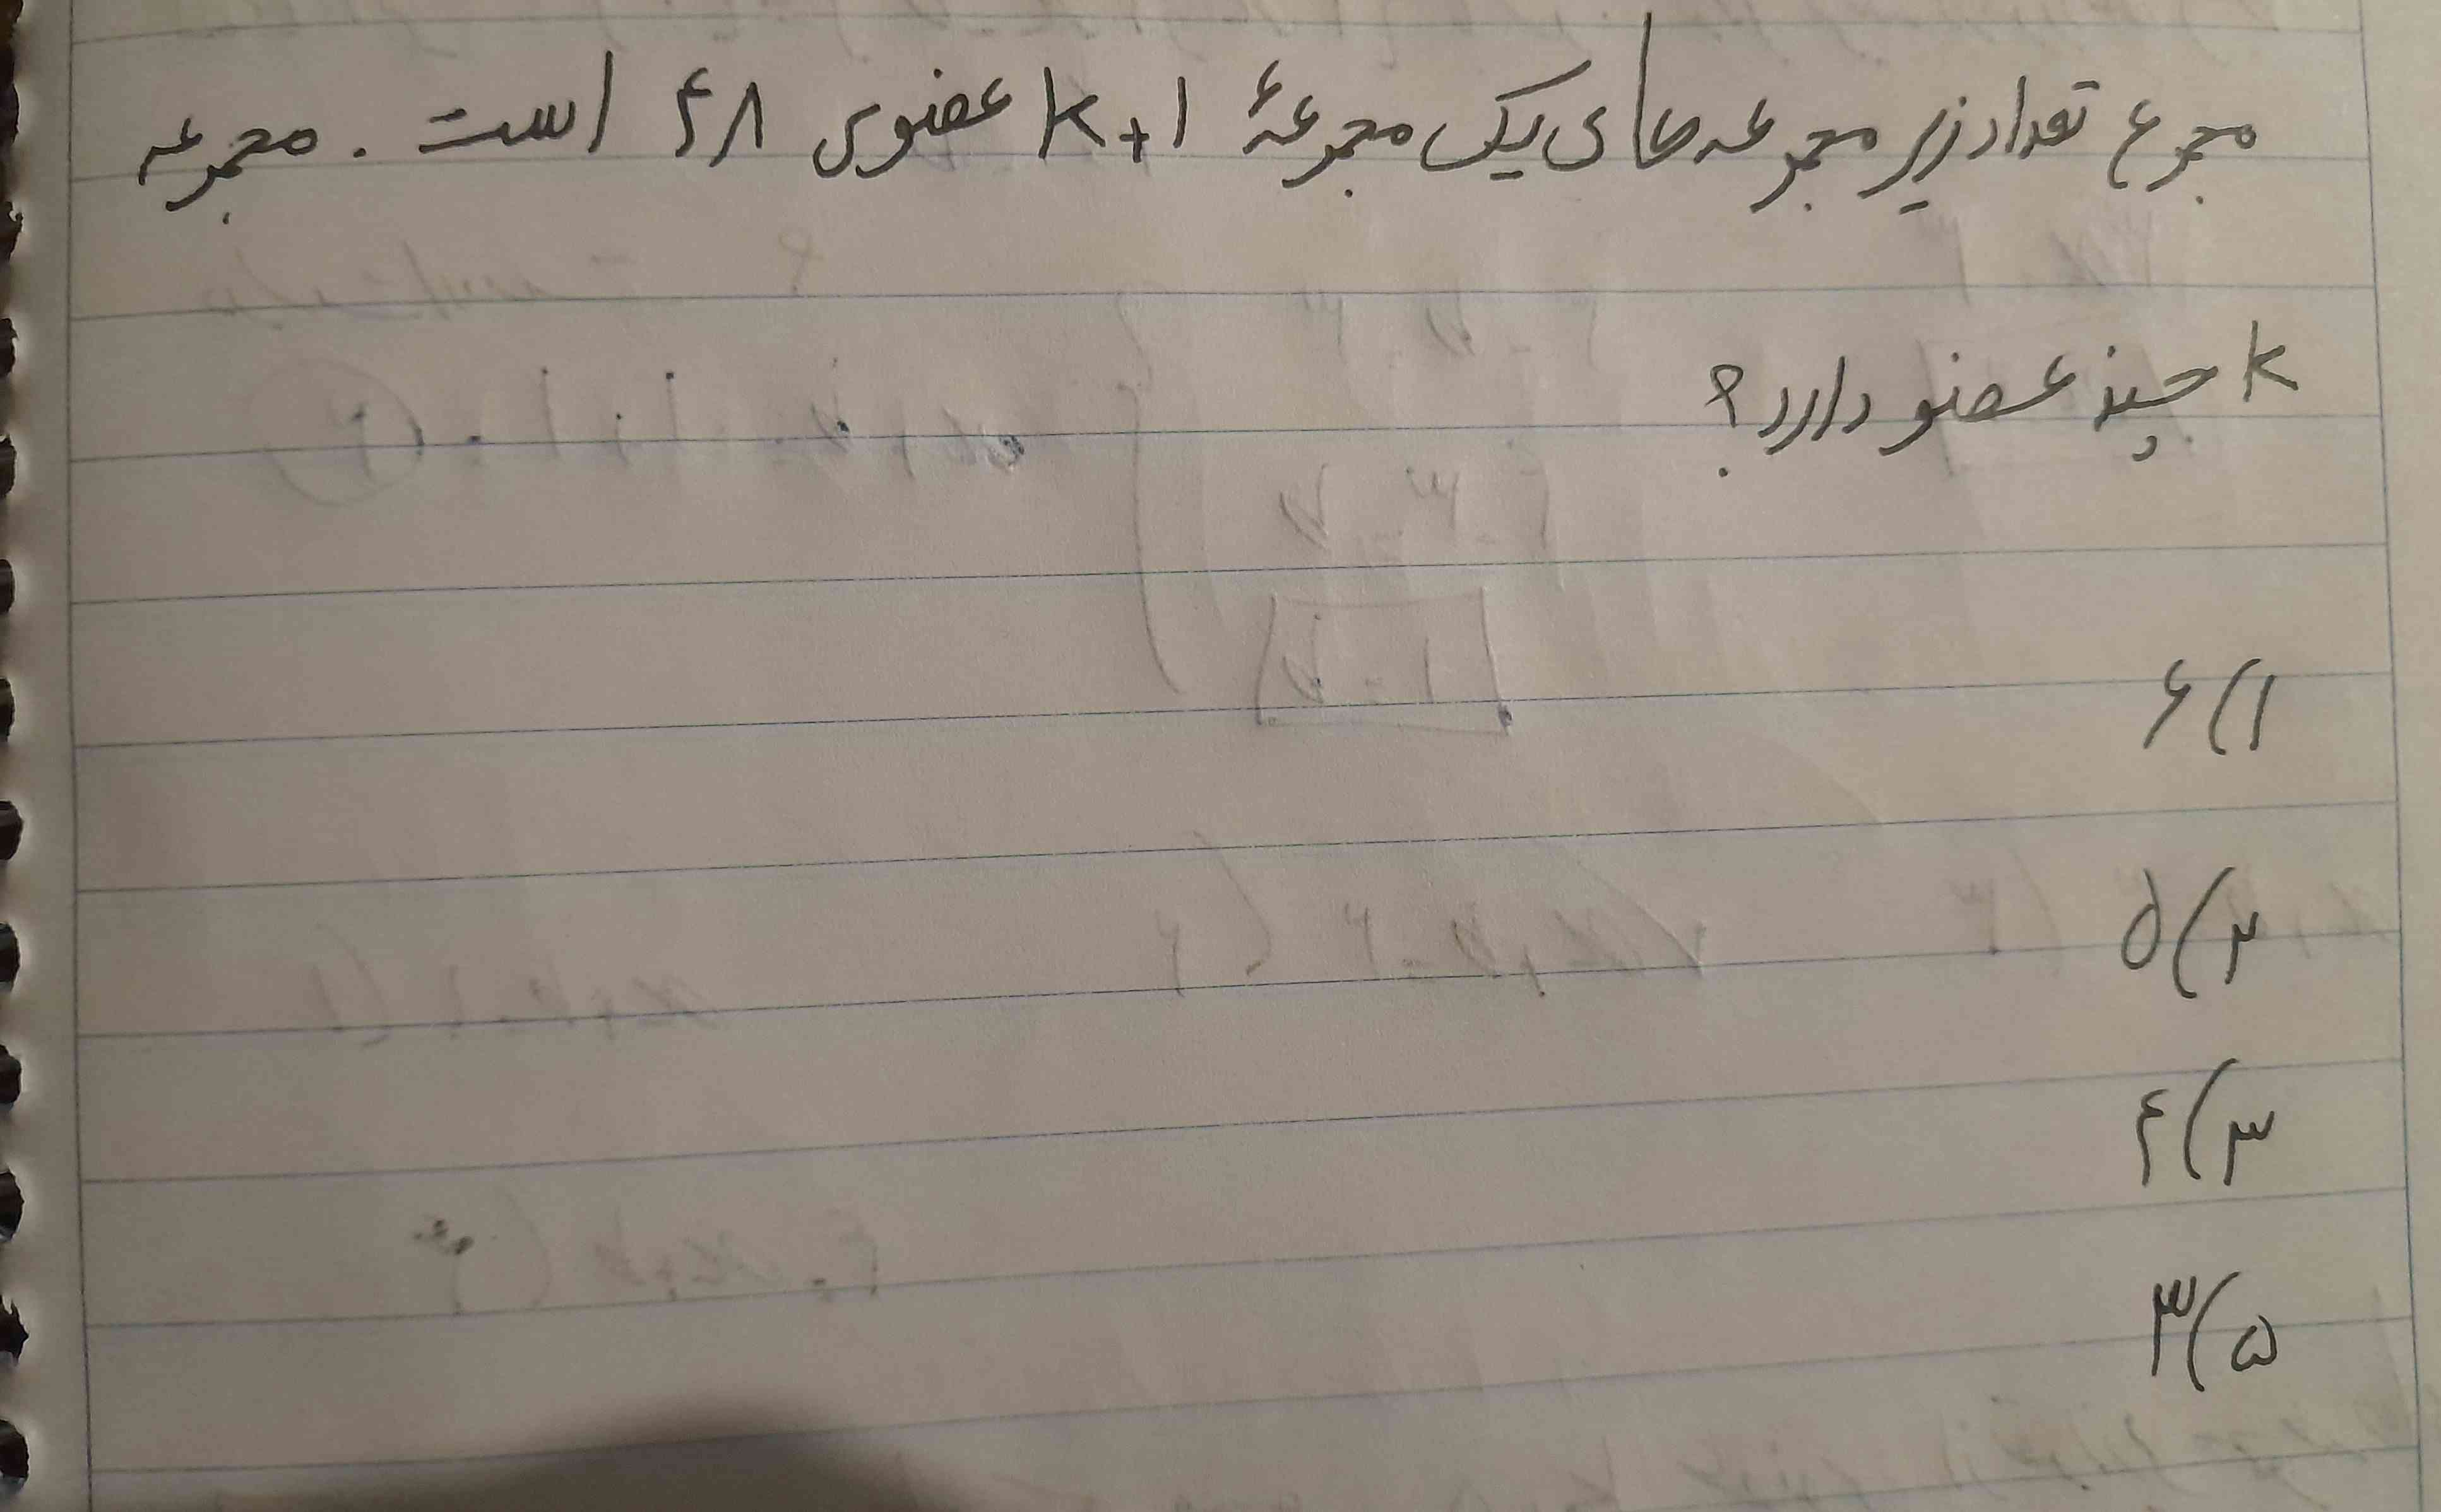 مجموع تعداد زیر مجموعه های یک مجموعهٔ k+1 عضوی ۴۸ است . مجموعه
k چند عضو دارد؟
۱) ۶
۲) ۵
۳) ۴
۵) ۳